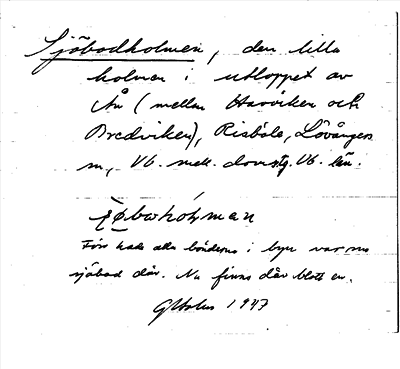 Sjöbodholmen, den lilla
holmen i utloppet av
Ån (mellan Harviken och
Bredviken), Risböle, Lövångers
sn, Vb. mell. domsg. Vb. län.
Förr hade alla bönderna i byn var sin
sjöbod där. Nu finns där blott en.
1947